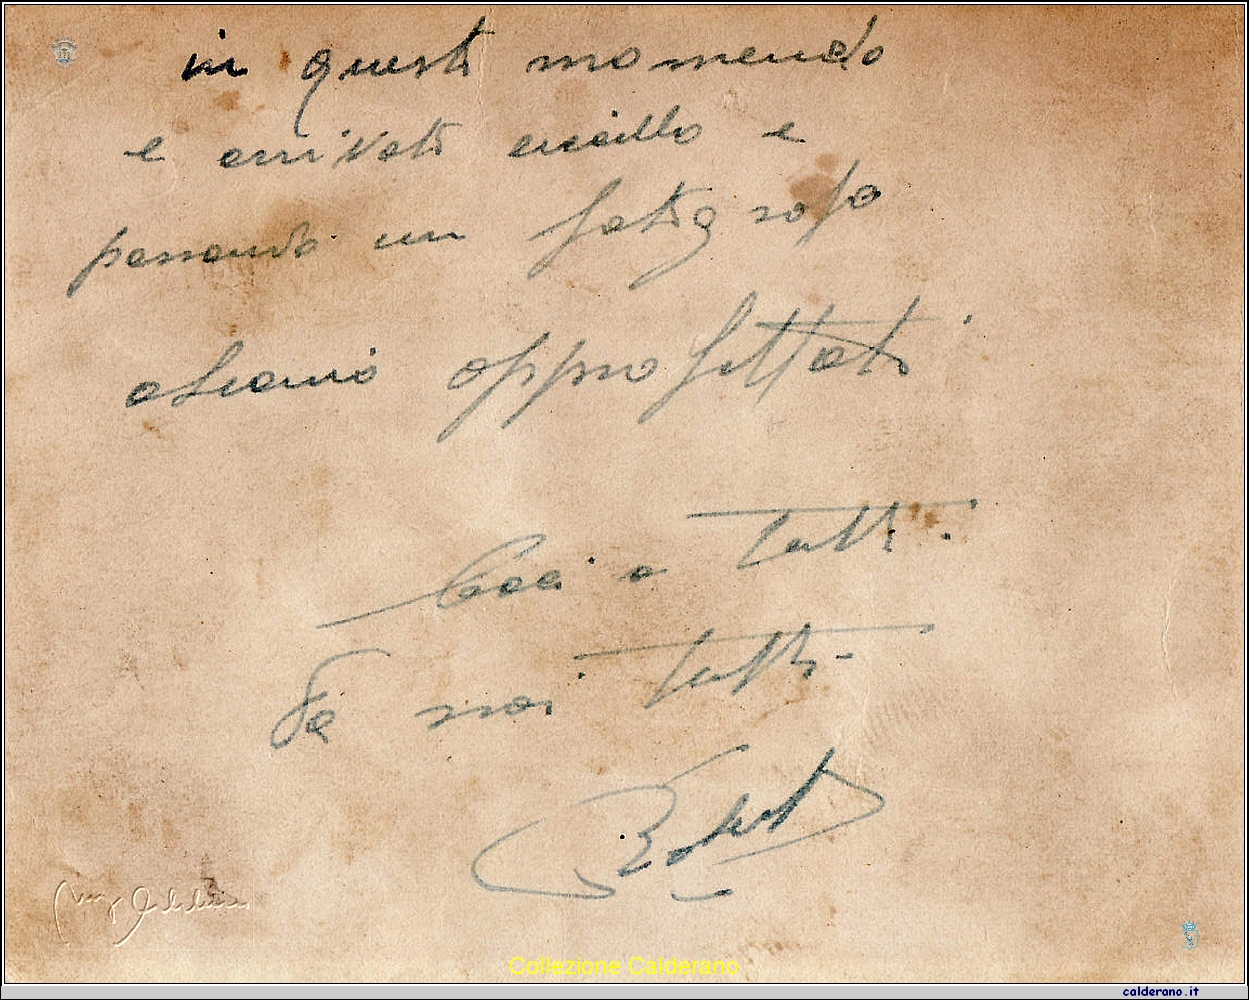 in questo momendo
e arrivato
passando un fotografo
abiamo approfittato
Baci a tutti
Da noi tutti
Collezione Calderano
calderano.it